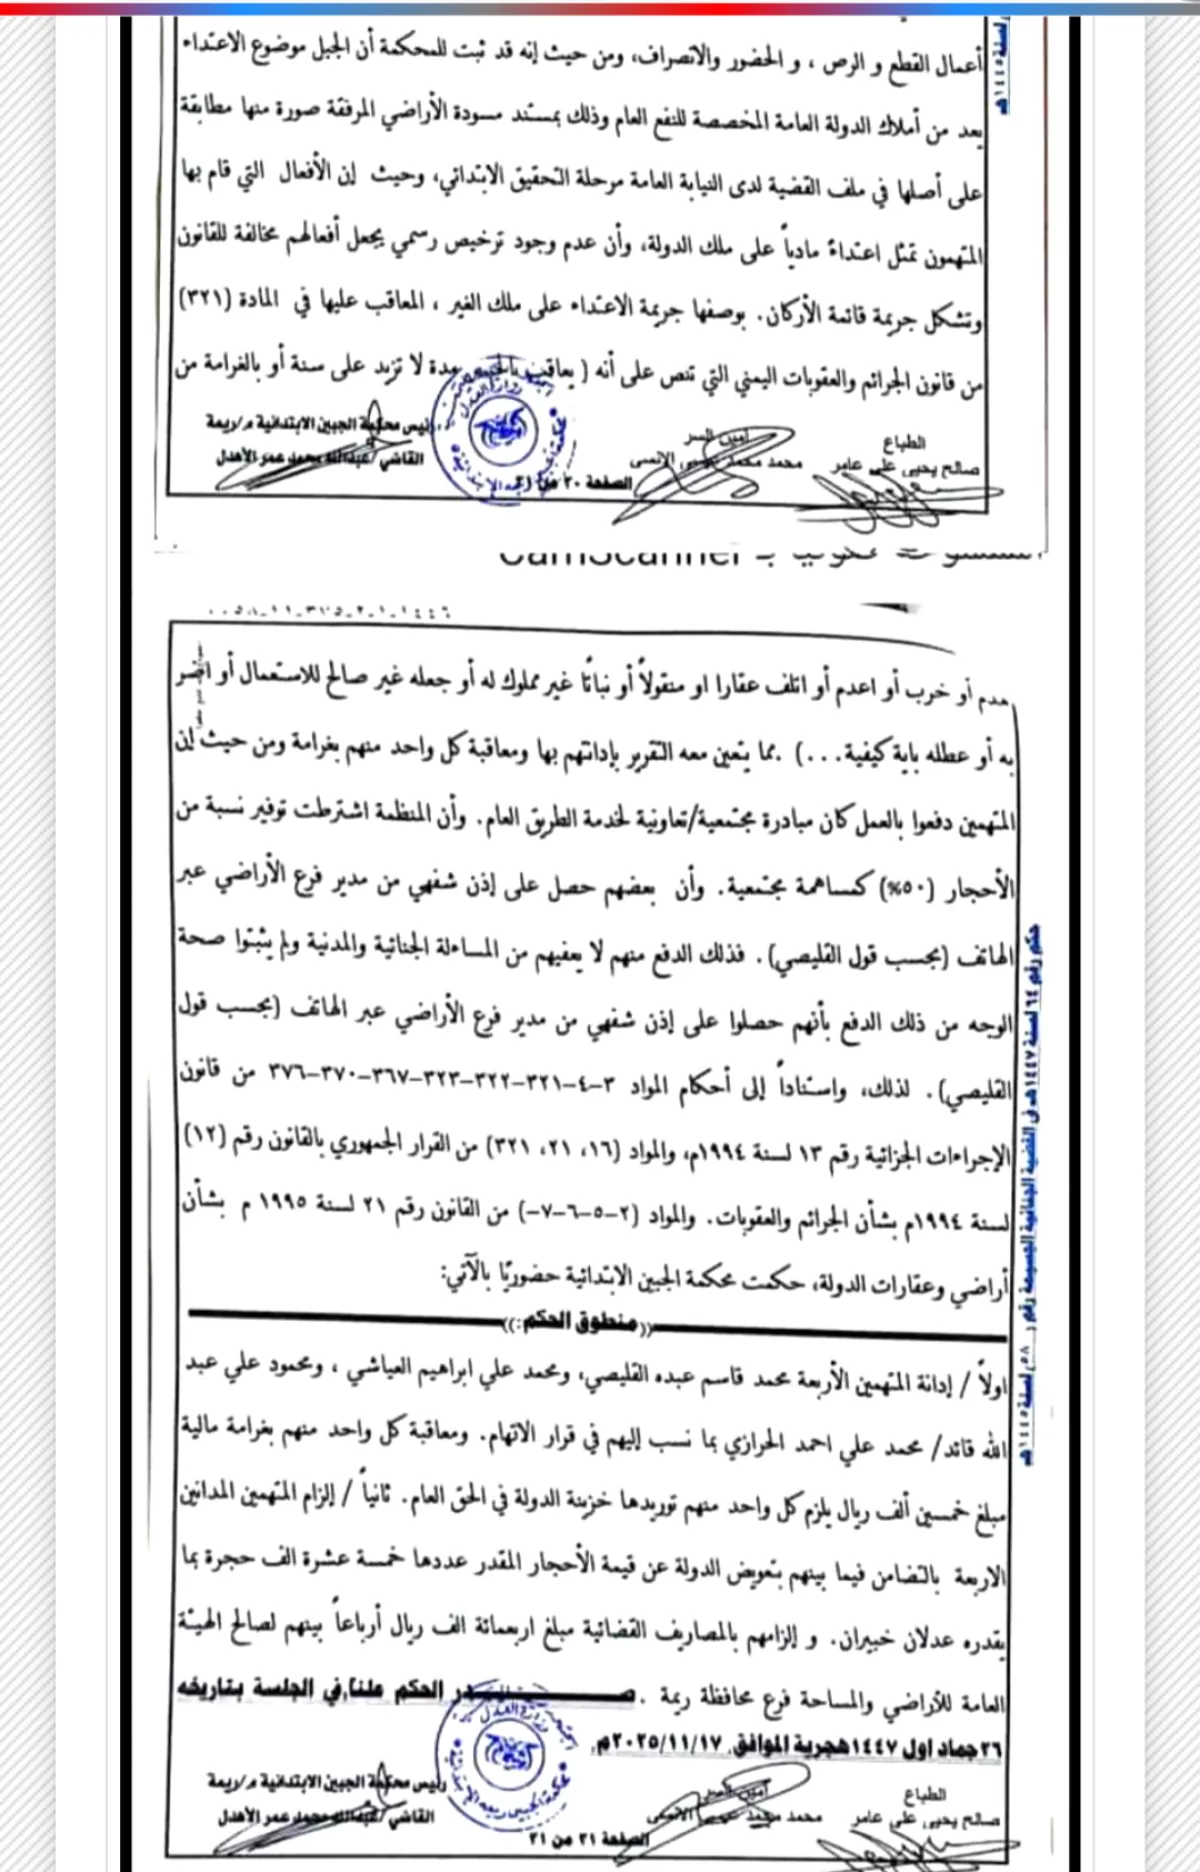 لسنة ١٤٤٥هـ
أعمال القطع و الرص ، و الحضور والانصراف، ومن حيث إنه قد ثبت للمحكمة أن الجبل موضوع الاعتداء
يعد من أملاك الدولة العامة المخصصة للنفع العام وذلك بمستند مسودة الأراضي المرفقة صورة منها مطابقة
على أصلها في ملف القضية لدى النيابة العامة مرحلة التحقيق الابتدائي، وحيث إن الأفعال التي قام بها
المتهمون تمثل اعتداءً مادياً على ملك الدولة، وأن عدم وجود ترخيص رسمي يجعل أفعالهم مخالفة للقانون
وتشكل جريمة قائمة الأركان. بوصفها جريمة الاعتداء على ملك الغير ، المعاقب عليها في المادة (٣٢١)
من قانون الجرائم والعقوبات اليمني التي تنص على أنه ( يعاقب بالحبس مدة لا تزيد على سنة أو بالغرامة من
الطباع
صالح يحيى علي عامر
أمين السر
محمد محمد عيسى الانسي
رئيس محكمة الجبين الابتدائية م/ريمة
القاضي/عبدالله محمد عمر الأهدل
وزارة العدل
الصفحة ٢٠ من ٢١
CamScanner
هدم أو خرب أو اعدم أو اتلف عقارا او منقولاً أو نباتًا غير مملوك له أو جعله غير صالح للاستعمال أو اضر
به أو عطله باية كيفية...) .مما يتعين معه التقرير بإدانتهم بها ومعاقبة كل واحد منهم بغرامة ومن حيث إن
المتهمين دفعوا بالعمل كان مبادرة مجتمعية/تعاونية لخدمة الطريق العام. وأن المنظمة اشترطت توفير نسبة من
الأحجار (٥٠%) كمساهمة مجتمعية. وأن بعضهم حصل على إذن شفهي من مدير فرع الأراضي عبر
الهاتف (بحسب قول القليصي). فذلك الدفع منهم لا يعفيهم من المساءلة الجنائية والمدنية ولم يثبتوا صحة
الوجه من ذلك الدفع بأنهم حصلوا على إذن شفهي من مدير فرع الأراضي عبر الهاتف (بحسب قول
القليصي). لذلك، واستناداً إلى أحكام المواد ٣-٤-٣٢١-٣٢٢-٣٢٣-٣٦٧-٣٧٠-٣٧٦ من قانون
الإجراءات الجزائية رقم ١٣ لسنة ١٩٩٤م، والمواد (١٦، ٢١، ٣٢١) من القرار الجمهوري بالقانون رقم (١٢)
لسنة ١٩٩٤م بشأن الجرائم والعقوبات. والمواد (٢-٥-٦-٧-) من القانون رقم ٢١ لسنة ١٩٩٥ م بشأن
أراضي وعقارات الدولة، حكمت محكمة الجبين الابتدائية حضوريًا بالآتي:
((منطوق الحكم:))
اولاً / إدانة المتهمين الأربعة محمد قاسم عبده القليصي، ومحمد علي ابراهيم العياشي ، ومحمود علي عبد
الله قائد/ محمد علي احمد الحرازي بما نسب إليهم في قرار الاتهام. ومعاقبة كل واحد منهم بغرامة مالية
مبلغ خمسين ألف ريال يلزم كل واحد منهم توريدها خزينة الدولة في الحق العام. ثانياً / إلزام المتهمين المدانين
الاربعة بالتضامن فيما بينهم بتعويض الدولة عن قيمة الأحجار المقدر عددها خمسة عشرة الف حجرة بما
يقدره عدلان خبيران. و إلزامهم بالمصاريف القضائية مبلغ اربعمائة الف ريال أرباعاً بينهم لصالح الهيئة
العامة للأراضي والمساحة فرع محافظة ريمة .صـــــدر الحكم علناً في الجلسة بتاريخه
٢٦جماد اول ١٤٤٧هجرية الموافق ٢٠٢٥/١١/١٧م.
حكم رقم ٦٤ لسنة ١٤٤٧هـ في القضية الجنائية الجسيمة رقم (٥٨) لسنة ١٤٤٥هـ
الطباع
صالح يحيى علي عامر
أمين السر
محمد محمد عيسى الانسي
رئيس محكمة الجبين الابتدائية م/ريمة
القاضي/عبدالله محمد عمر الأهدل
وزارة العدل
الصفحة ٢١ من ٢١